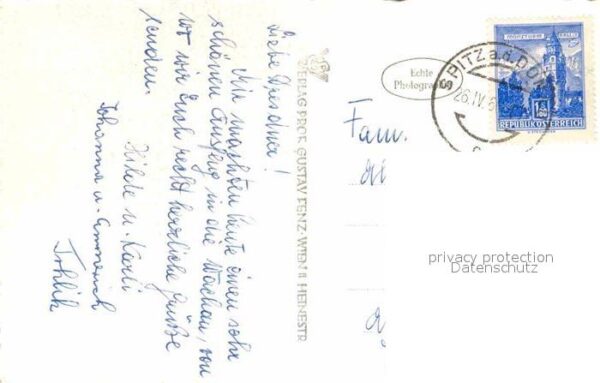 Liebe
Wir machten heute einen sehr
schönen Ausflug in die Wachau, von
wo wir Euch recht herzliche Grüße
senden.
Hilde u. Karli
Johanna u. Emmerich
VERLAG PROF. GUSTAV FENZ·WIEN II HEINESTR
Echte
Photographie
Fam.
SPITZ a.d. DO
26.IV.6
MÜNZTURM HALL i.T.
1.50
REPUBLIK ÖSTERREICH
privacy protection
Datenschutz